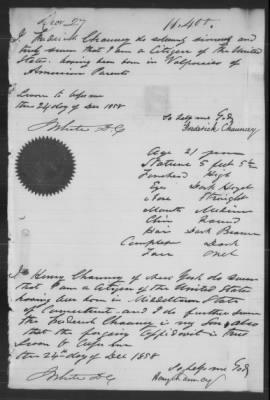 I Frederick Chauncey do solemnly sincerely and
truly swear that I am a Citizen of the United
States. having been born in Valparaiso of
American Parents
Sworn to before me
this 24 day of Dec 1858
So help me God
Frederick Chauncey
J White
Age 21 years
Stature 5 feet 5 in
Forehead High
Eyes Dark Hazel
Nose Straight
Mouth Medium
Chin Round
Hair Dark Brown
Complexion Dark
Face Oval
I Henry Chauncey of New York do swear
that I am a citizen of the United States
having been born in Middletown State
of Connecticut. and I do further swear
that Frederick Chauncey is my Son, also
that the forgoing Affidavit is true
Sworn to before me
this 24th day of Dec 1858
So help me God
Henry Chauncey
J White